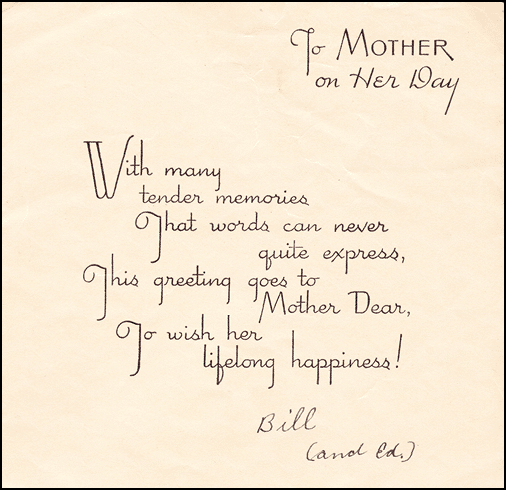 To MOTHER
on Her Day
With many
tender memories
That words can never
quite express,
This greeting goes to
Mother Dear,
To wish her
lifelong happiness!
Bill
(and Ed.)